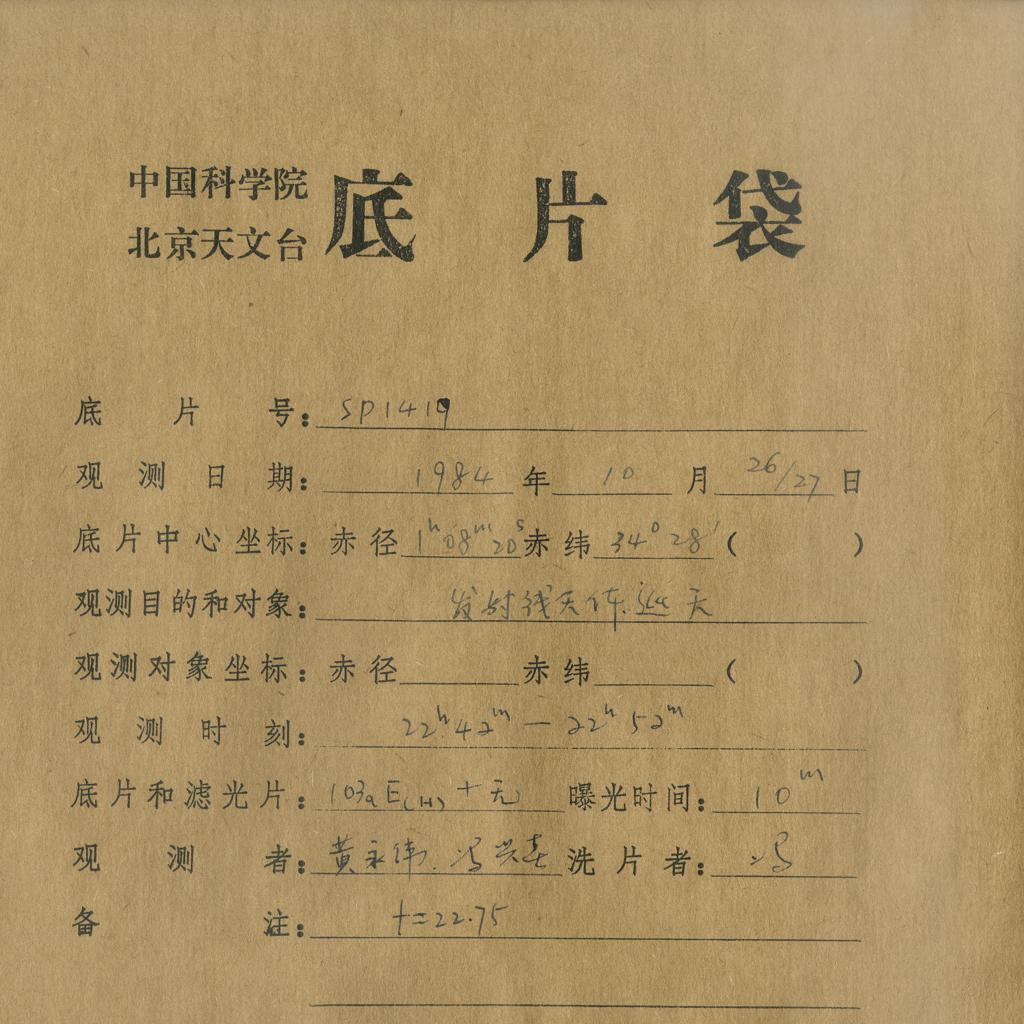 中国科学院
北京天文台
底片袋
底片号：SP1419
观测日期：1984年10月26/27日
底片中心坐标：赤径1ʰ08ᵐ20ˢ赤纬34°28′（ ）
观测目的和对象：发射线天体巡天
观测对象坐标：赤径 赤纬 （ ）
观测时刻：22ʰ42ᵐ—22ʰ52ᵐ
底片和滤光片：103aE(H)+无 曝光时间：10ᵐ
观测者：黄永伟.冯兴春 洗片者：冯
备注：t=22.75